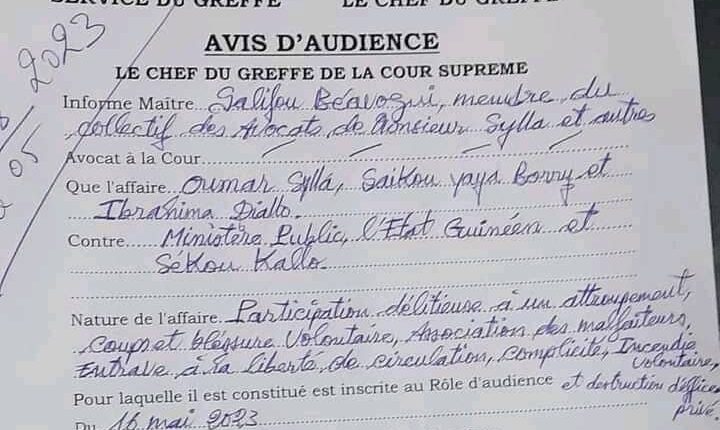 SERVICE DU GREFFE LE CHEF DU GREFFE
2023
05
AVIS D'AUDIENCE
LE CHEF DU GREFFE DE LA COUR SUPREME
Informe Maître Salifou Béavogui, membre du
collectif des Avocats de Monsieur Sylla et autres
Avocat à la Cour
Que l'affaire Oumar Sylla, Saikou yaya Barry et
Ibrahima Diallo.
Contre Ministère Public, l'Etat Guinéen et
Sékou Kallo
Nature de l'affaire Participation délitieuse à un attroupement,
Coups et bléssure Volontaire, Association des malfaiteurs,
Entrave à la liberté de circulation, Complicité, Incendie
Volontaire,
Pour laquelle il est constitué est inscrite au Rôle d'audience et destruction d'édifice
privé.
Du 16 mai 2023